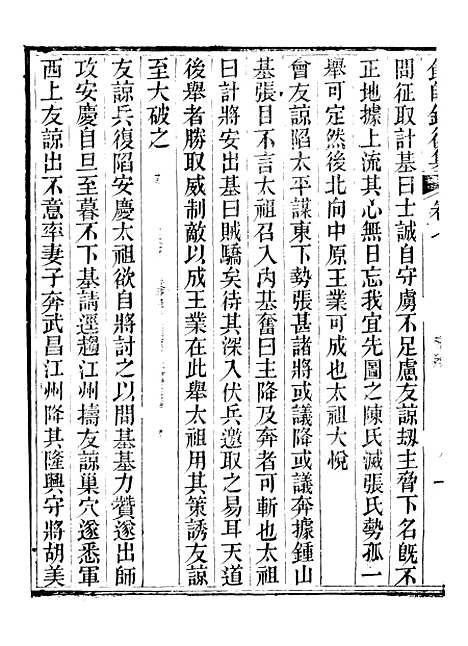 問征取計基曰士誠自守虜不足慮友諒劫主脅下名旣不
正地據上流其心無日忘我宜先圖之陳氏滅張氏勢孤一
舉可定然後北向中原王業可成也太祖大悅
會友諒陷太平謀東下勢張甚諸將或議降或議奔據鍾山
基張目不言太祖召入內基奮曰主降及奔者可斬也太祖
曰計將安出基曰賊驕矣待其深入伏兵邀取之易耳天道
後舉者勝取威制敵以成王業在此舉太祖用其策誘友諒
至大破之
友諒兵復陷安慶太祖欲自將討之以問基基力贊遂出師
攻安慶自旦至暮不下基請逕趨江州擣友諒巢穴遂悉軍
西上友諒出不意率妻子奔武昌江州降其隆興守將胡美